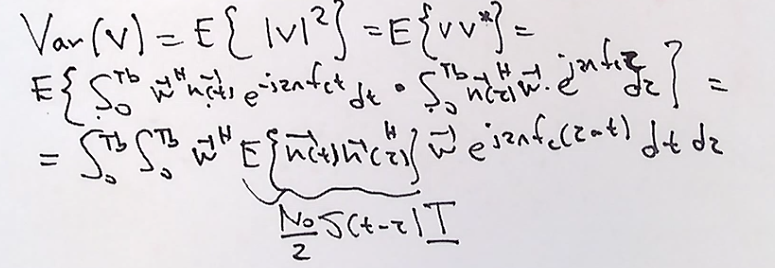 Var(v) = E{ |v|² } = E{vv*} =
E{ ∫₀^Tb w⃗^H n⃗(t) e^-j2πfct dt • ∫₀^Tb n⃗(τ)^H w⃗ · e^j2πfcτ dτ } =
= ∫₀^Tb ∫₀^Tb w⃗^H E{n⃗(t) n⃗(τ)^H} w⃗ e^j2πfc(τ-t) dt dτ
N₀/2 δ(t-τ) I